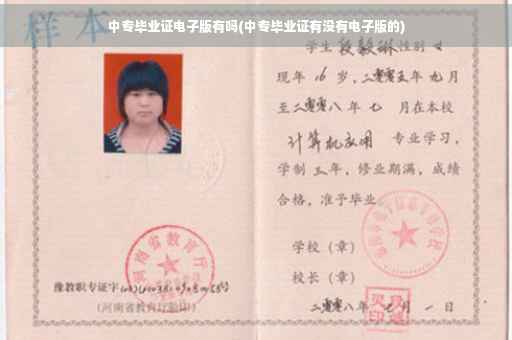 中专毕业证电子版有吗(中专毕业证有没有电子版的)
样本
学生 段毅琳 性别 女
现年 16 岁，二零零五年 九 月
至二零零八年 七 月在本校
计算机应用 专业学习，
学制 三 年，修业期满，成绩
合格，准予毕业
学校（章）
校长（章）
二零零八年 月 一 日
河南省教育厅
豫教职专证字
(河南省教育厅验印)